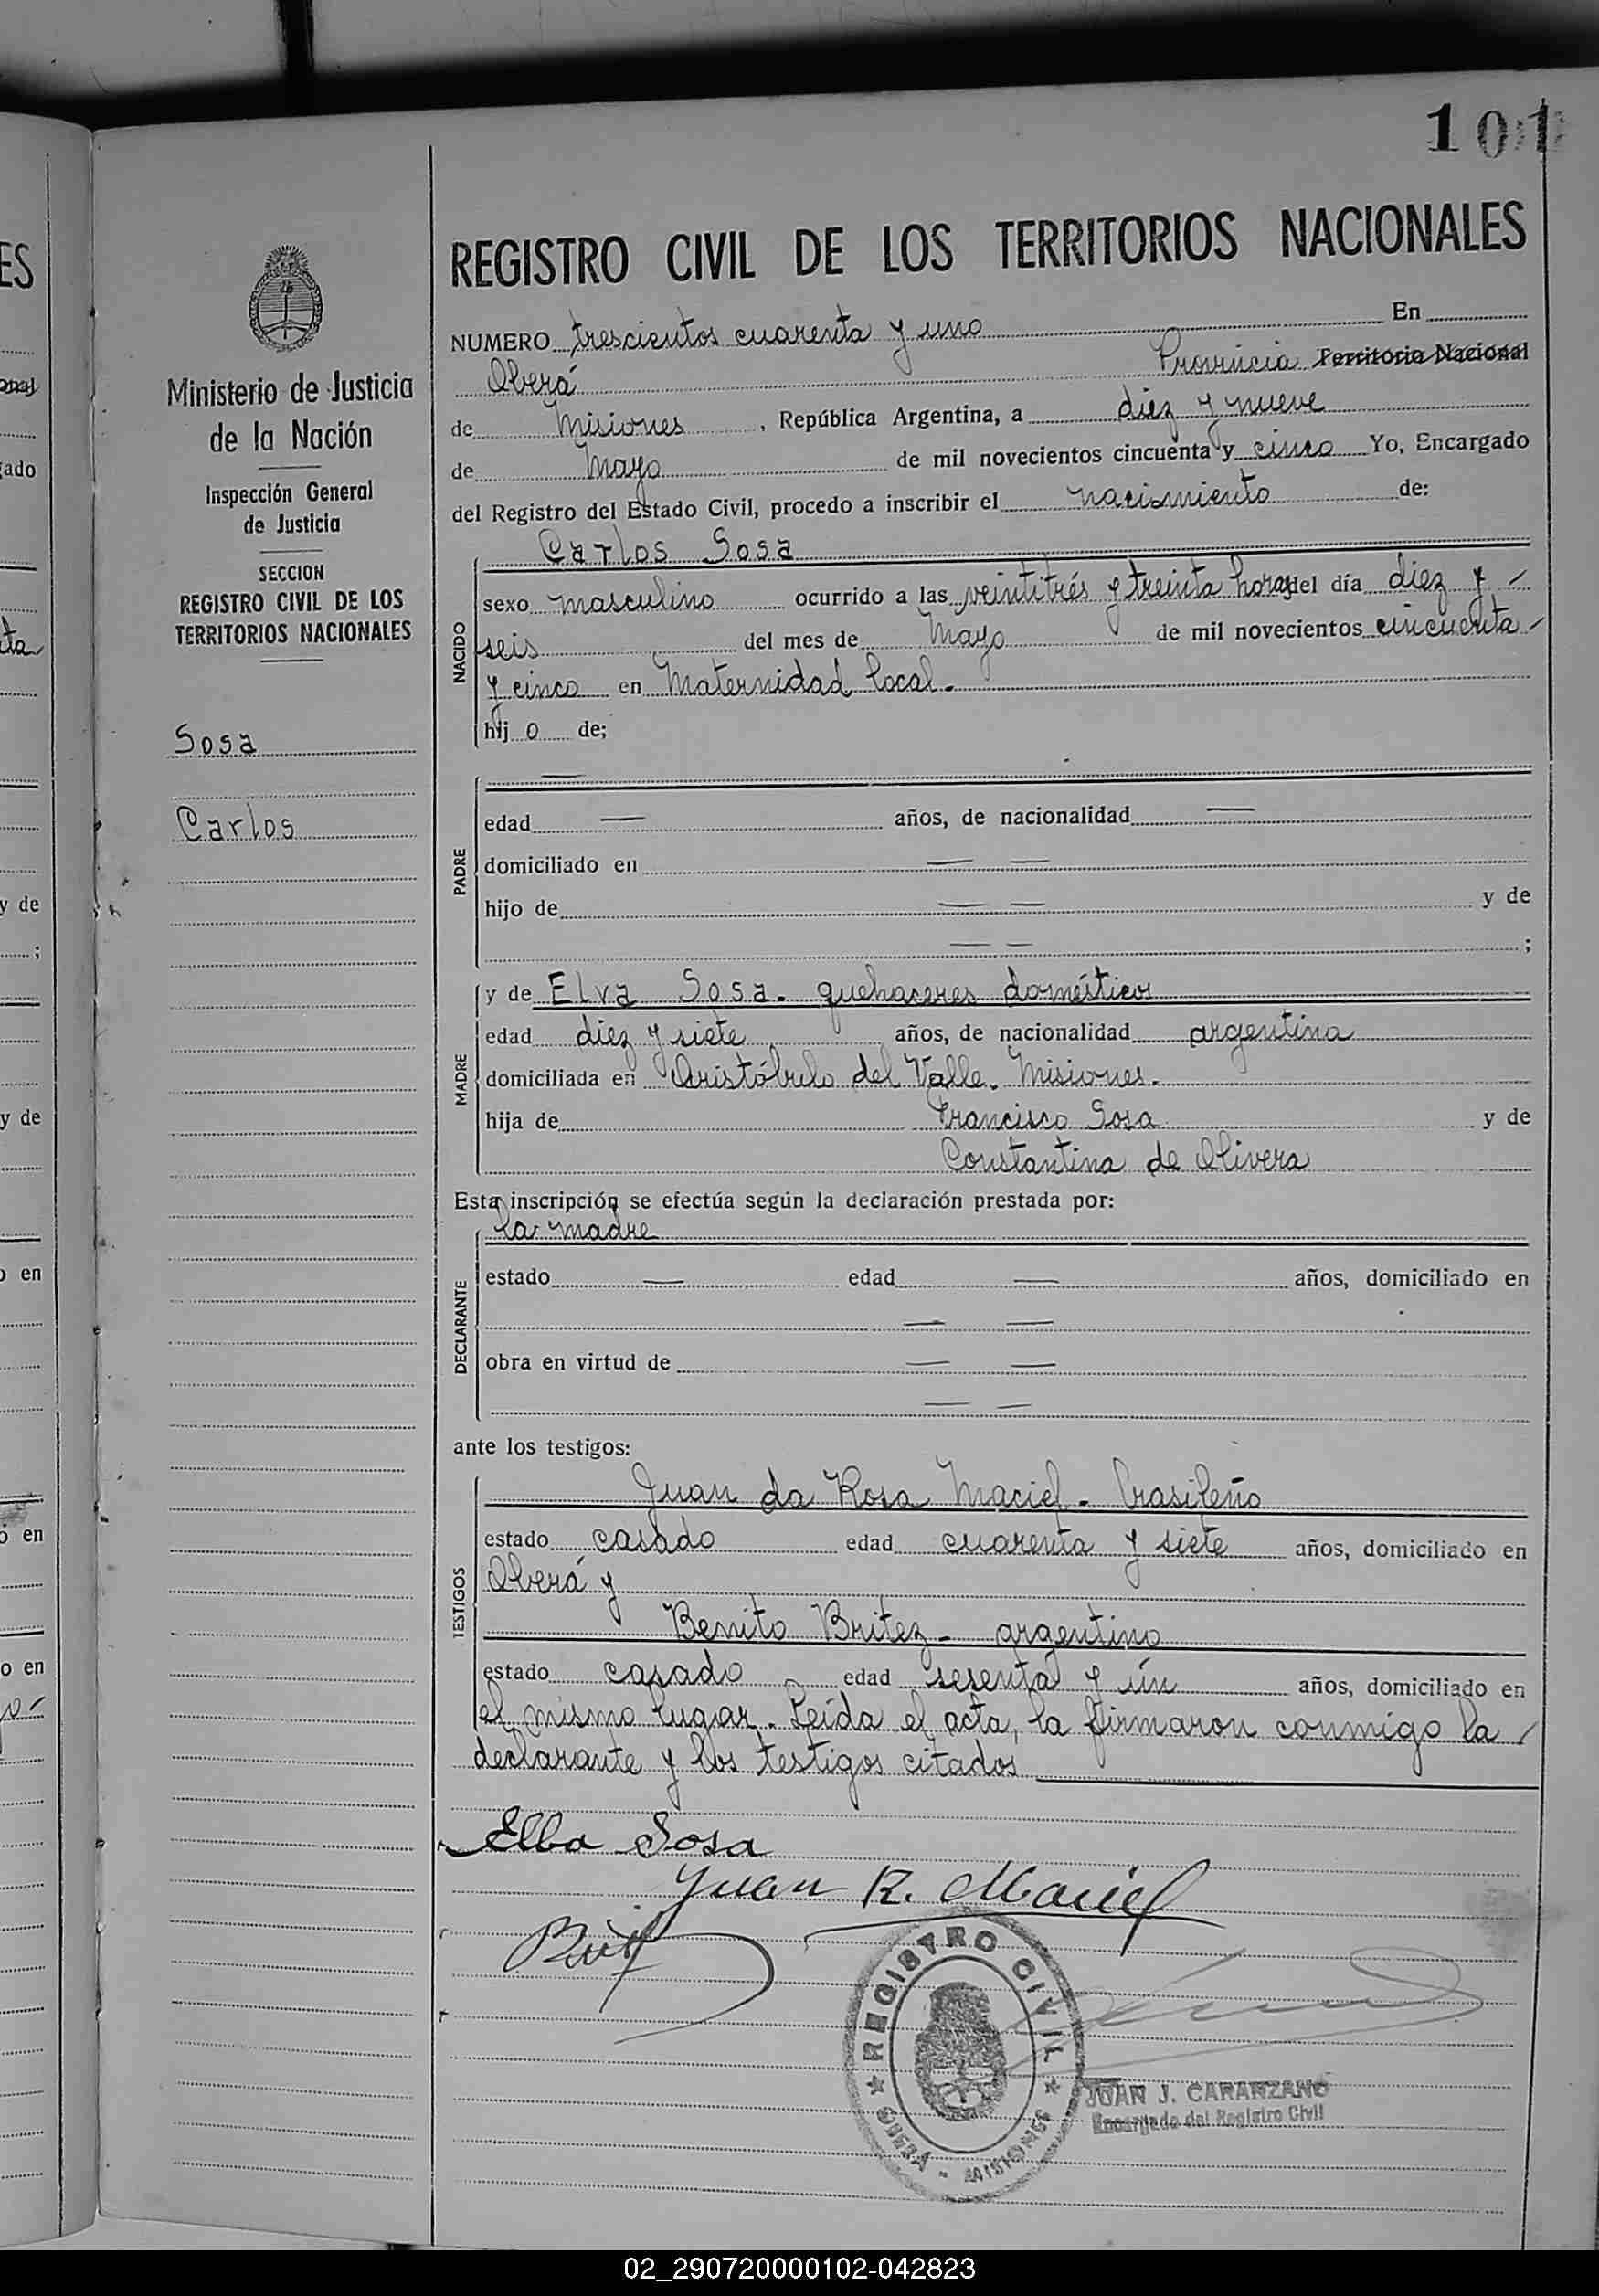 101
REGISTRO CIVIL DE LOS TERRITORIOS NACIONALES
Ministerio de Justicia
de la Nación
Inspección General
de Justicia
SECCION
REGISTRO CIVIL DE LOS
TERRITORIOS NACIONALES
Sosa
Carlos
NUMERO trescientos cuarenta y uno En
Oberá Provincia Territorio Nacional
de Misiones, República Argentina, a diez y nueve
de Mayo de mil novecientos cincuenta y cinco Yo, Encargado
del Registro del Estado Civil, procedo a inscribir el nacimiento de:
NACIDO
Carlos Sosa
sexo masculino ocurrido a las veintitrés y treinta horas del día diez y
seis del mes de Mayo de mil novecientos cincuenta
y cinco en Maternidad local.
hijo de;
PADRE
edad — años, de nacionalidad —
domiciliado en — —
hijo de — — y de
— — ;
MADRE
y de Elva Sosa. quehaceres domésticos
edad diez y siete años, de nacionalidad argentina
domiciliada en Aristóbulo del Valle. Misiones.
hija de Francisco Sosa y de
Constantina de Olivera
Esta inscripción se efectúa según la declaración prestada por:
DECLARANTE
la madre
estado — edad — años, domiciliado en
— —
obra en virtud de — —
— —
ante los testigos:
TESTIGOS
Juan da Rosa Maciel - brasileño
estado casado edad cuarenta y siete años, domiciliado en
Oberá y
Benito Britez - argentino
estado casado edad sesenta y ún años, domiciliado en
el mismo lugar. Leída el acta, la firmaron conmigo la
declarante y los testigos citados
Elba Sosa
Juan R. Maciel
REGISTRO CIVIL
OBERÁ - MISIONES
JUAN J. CARANZANO
Encargado del Registro Civil
ES
onal
gado
ta
y de
;
y de
o en
o en
o en
02_290720000102-042823